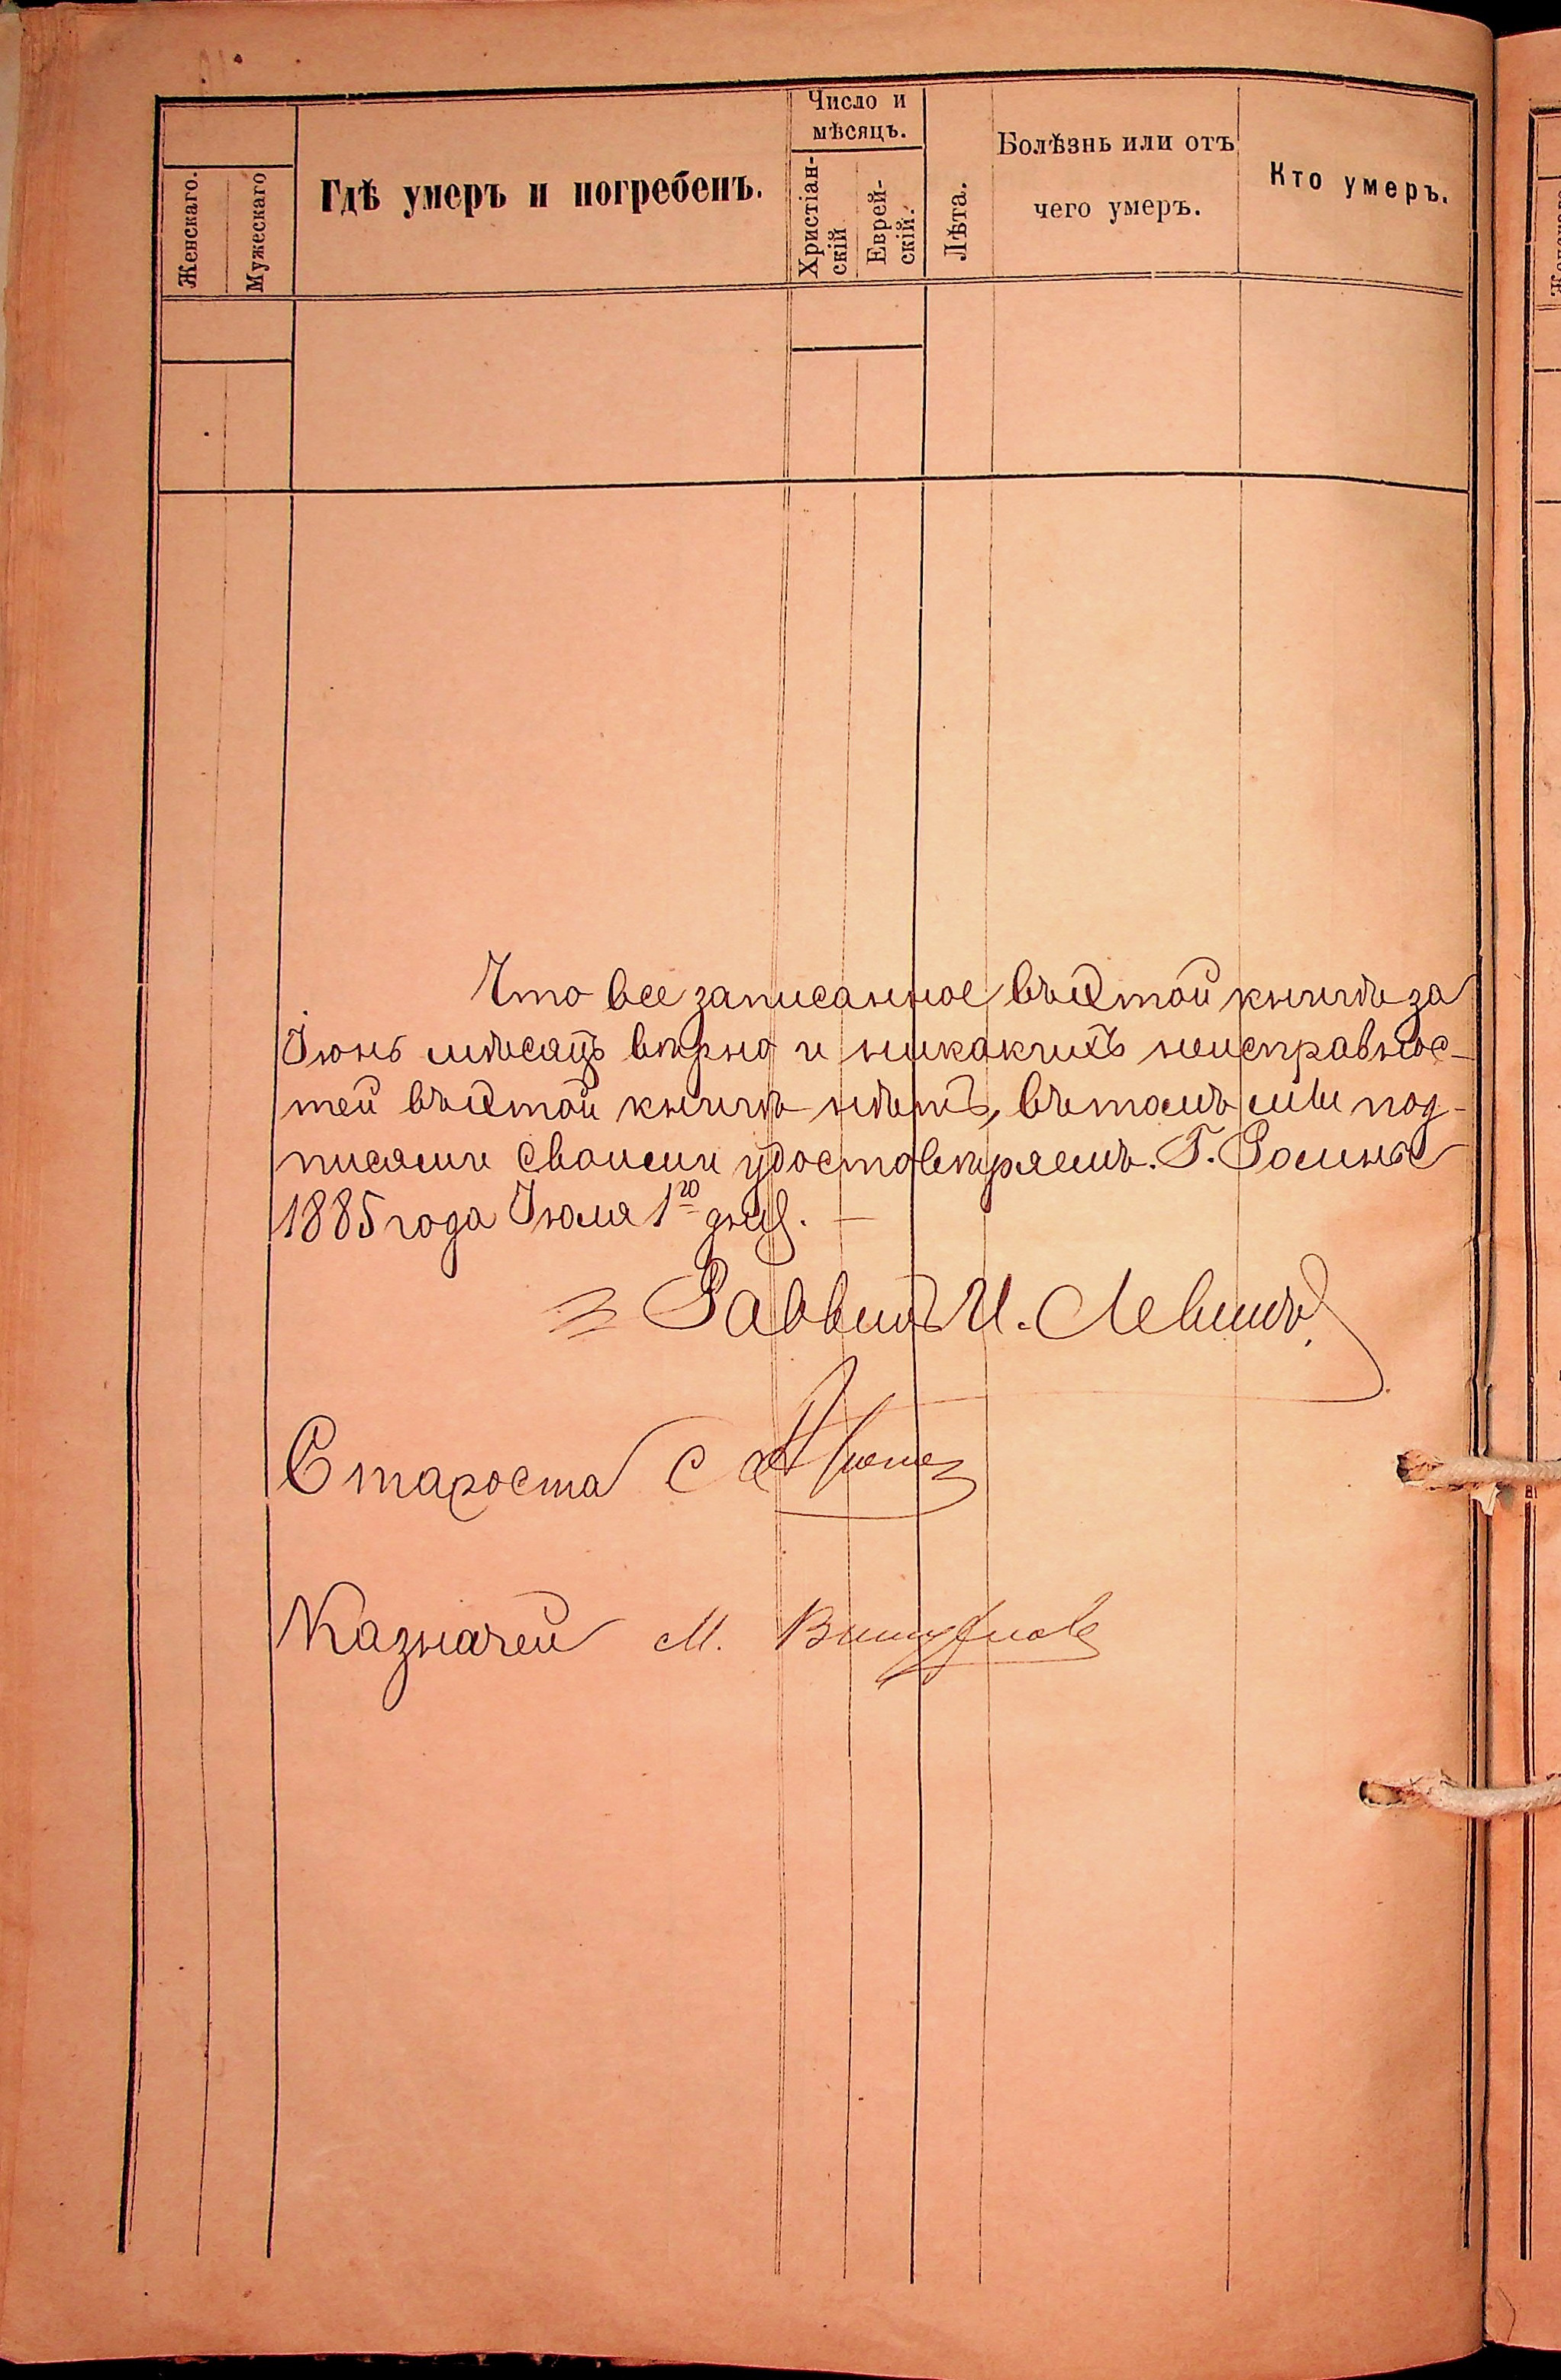 Женскаго.
Мужескаго
Гдѣ умеръ и погребенъ.
Число и
мѣсяцъ.
Христіан-
скій
Еврей-
скій.
Лѣта.
Болѣзнь или отъ
чего умеръ.
Кто умеръ.
Что все записанное въ этой книгѣ за
Іюнь мѣсяцъ вѣрно и никакихъ неисправнос-
тей въ этой книгѣ нѣтъ, въ томъ мы под-
писями своими удостовѣряемъ. Г. Ромны
1885 года Іюля 1го дня. —
Раввинъ И. Левинъ
Староста С
Казначей М.